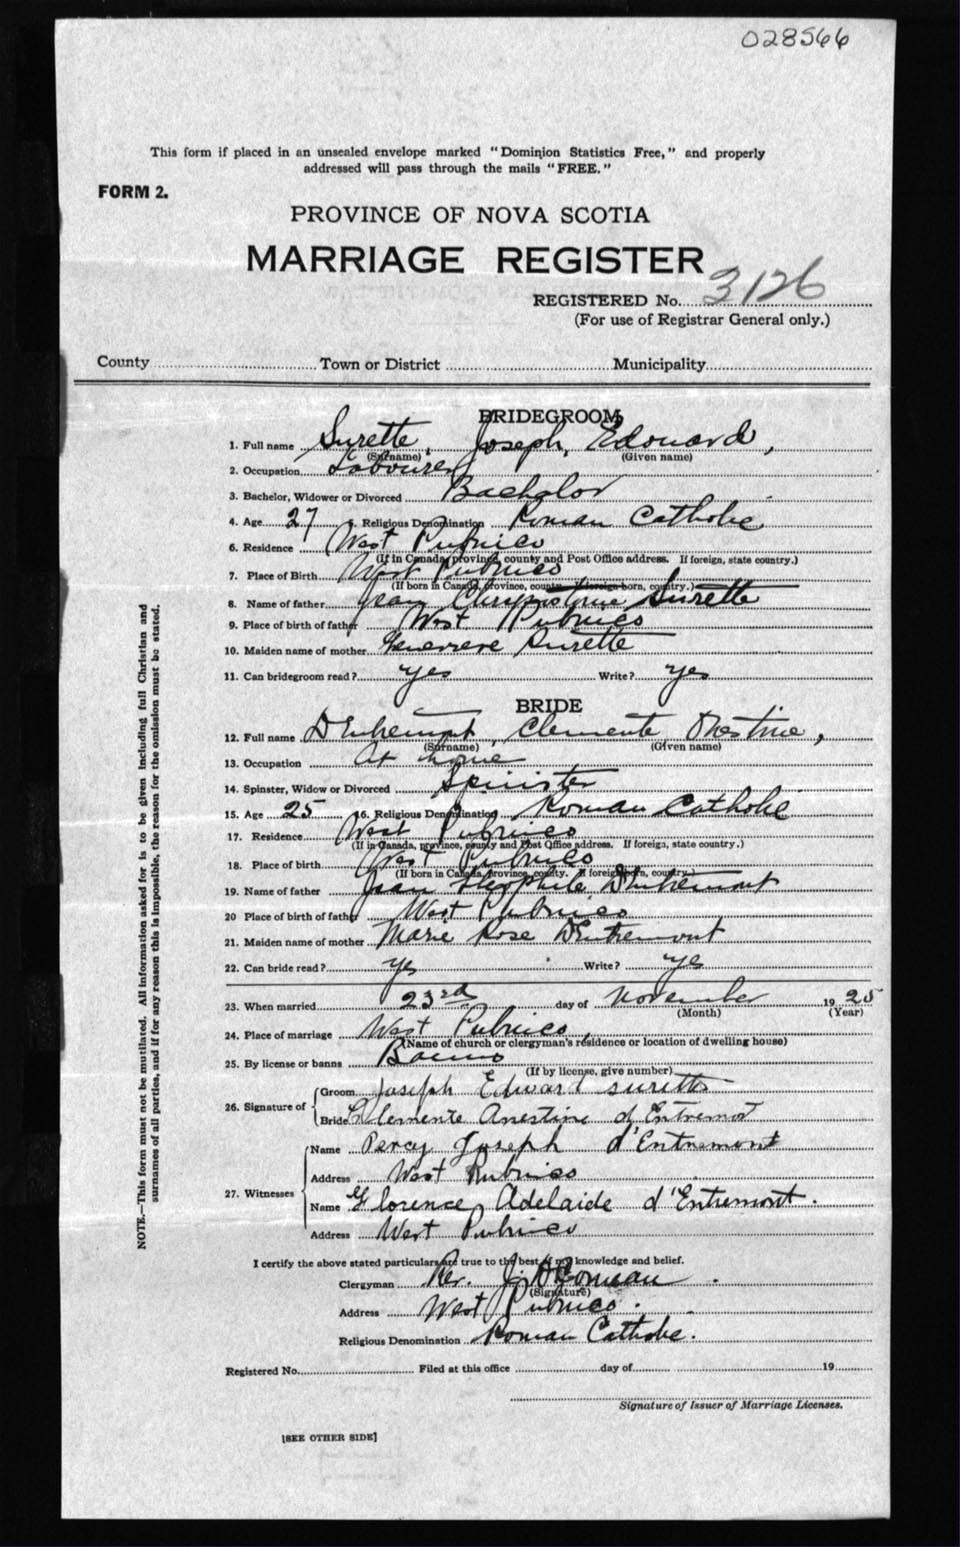 028566
This form if placed in an unsealed envelope marked "Dominion Statistics Free," and properly
addressed will pass through the mails "FREE."
FORM 2.
PROVINCE OF NOVA SCOTIA
MARRIAGE REGISTER
REGISTERED No. 3126
(For use of Registrar General only.)
County Town or District Municipality
BRIDEGROOM
1. Full name Surette, Joseph, Edouard,
(Surname) (Given name)
2. Occupation Labourer
3. Bachelor, Widower or Divorced Bachelor
4. Age 27 5. Religious Denomination Roman Catholic
6. Residence West Pubnico
(If in Canada, province, county and Post Office address. If foreign, state country.)
7. Place of Birth West Pubnico
(If born in Canada, province, county. If foreign born, country.)
8. Name of father Jean Surette
9. Place of birth of father West Pubnico
10. Maiden name of mother Surette
11. Can bridegroom read? yes Write? yes
BRIDE
12. Full name D'Entremont, Clemente
(Surname) (Given name)
13. Occupation At home
14. Spinster, Widow or Divorced Spinster
15. Age 25 16. Religious Denomination Roman Catholic
17. Residence West Pubnico
(If in Canada, province, county and Post Office address. If foreign, state country.)
18. Place of birth West Pubnico
(If born in Canada, province, county. If foreign born, country.)
19. Name of father Jean Theophile D'Entremont
20 Place of birth of father West Pubnico
21. Maiden name of mother Marie Rose D'Entremont
22. Can bride read? yes Write? yes
23. When married 23rd day of November 1925
(Month) (Year)
24. Place of marriage West Pubnico,
(Name of church or clergyman's residence or location of dwelling house)
25. By license or banns Banns
(If by license, give number)
26. Signature of
Groom Joseph Edward Surette
Bride Clemente Anestine d'Entremont
27. Witnesses
Name Percy Joseph d'Entremont
Address West Pubnico
Name Florence Adelaide d'Entremont.
Address West Pubnico
I certify the above stated particulars are true to the best of my knowledge and belief.
Clergyman Rev. Comeau
(Signature)
Address West Pubnico.
Religious Denomination Roman Catholic.
Registered No. Filed at this office day of 19
Signature of Issuer of Marriage Licenses.
[SEE OTHER SIDE]
NOTE.—This form must not be mutilated. All information asked for is to be given including full Christian and
surnames of all parties, and if for any reason this is impossible, the reason for the omission must be stated.